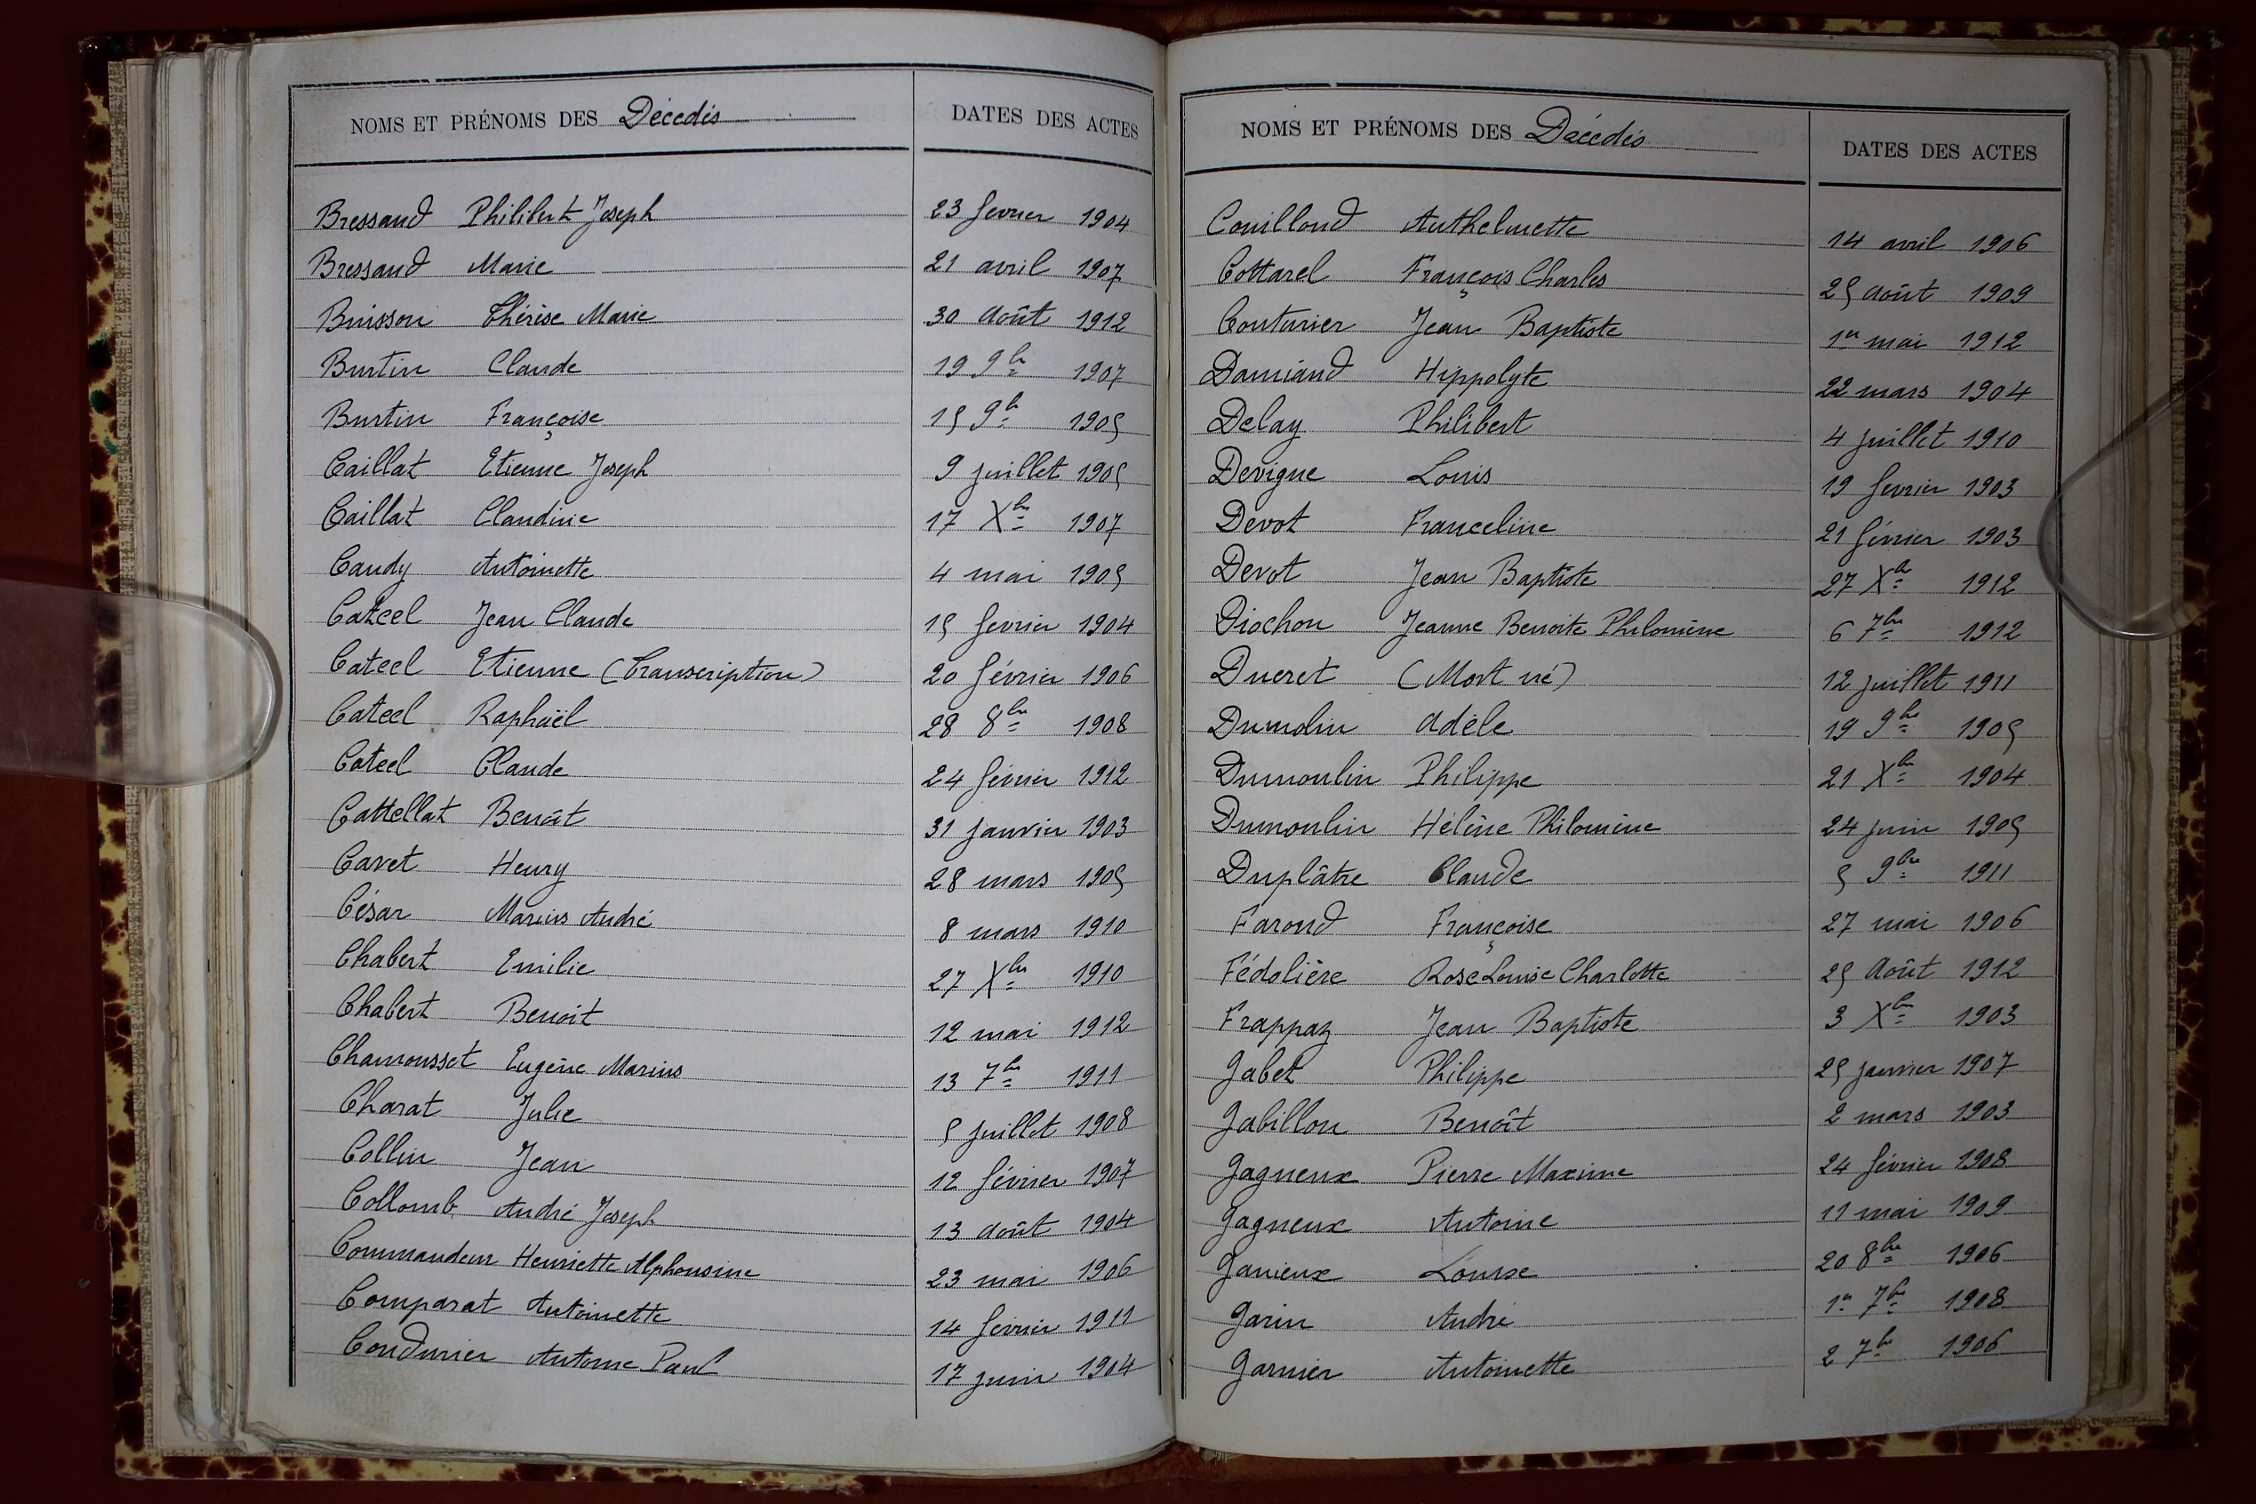 NOMS ET PRÉNOMS DES Décedés DATES DES ACTES
Bressand Philibert Joseph 23 fevrier 1904
Bressand Marie 21 avril 1907
Buisson Thérèse Marie 30 Août 1912
Burtin Claude 19 9bre 1907
Burtin Françoise 15 9bre 1905
Caillat Etienne Joseph 9 juillet 1905
Caillat Claudine 17 Xbre 1907
Candy Antoinette 4 mai 1905
Catcel Jean Claude 15 fevrier 1904
Catcel Etienne (Transcription) 20 février 1906
Catcel Raphaël 28 8bre 1908
Catcel Claude 24 février 1912
Cattellat Benoît 31 janvier 1903
Cavet Henry 28 mars 1905
César Marius André 8 mars 1910
Chabert Emilie 27 Xbre 1910
Chabert Benoit 12 mai 1912
Chamousset Eugène Marius 13 7bre 1911
Charat Julie 5 juillet 1908
Collin Jean 12 février 1907
Collomb André Joseph 13 août 1904
Commandeur Henriette Alphonsine 23 mai 1906
Comparat Antoinette 14 fevrier 1911
Condurier Antoine Paul 17 juin 1904
NOMS ET PRÉNOMS DES Décedés DATES DES ACTES
Couilloud Anthelmette 14 avril 1906
Cottarel François Charles 25 août 1909
Couturier Jean Baptiste 1er mai 1912
Damiand Hippolyte 22 mars 1904
Delay Philibert 4 juillet 1910
Devigne Louis 19 fevrier 1903
Devot Franceline 21 février 1903
Devot Jean Baptiste 27 Xbre 1912
Diochon Jeanne Benoite Philomène 6 7bre 1912
Ducret (Mort né) 12 juillet 1911
Dumolin Adèle 19 9bre 1905
Dumoulin Philippe 21 Xbre 1904
Dumoulin Hélène Philomène 24 juin 1905
Duplâtre Claude 5 9bre 1911
Farond Françoise 27 mai 1906
Fédolière Rose Louise Charlotte 25 Août 1912
Frappaz Jean Baptiste 3 Xbre 1903
Gabet Philippe 25 janvier 1907
Gabillon Benoît 2 mars 1903
Gagneux Pierre Maxime 24 février 1908
Gagneux Antoine 11 mai 1909
Ganieux Louise 20 8bre 1906
Garin André 1er 7bre 1908
Garnier Antoinette 2 7bre 1906